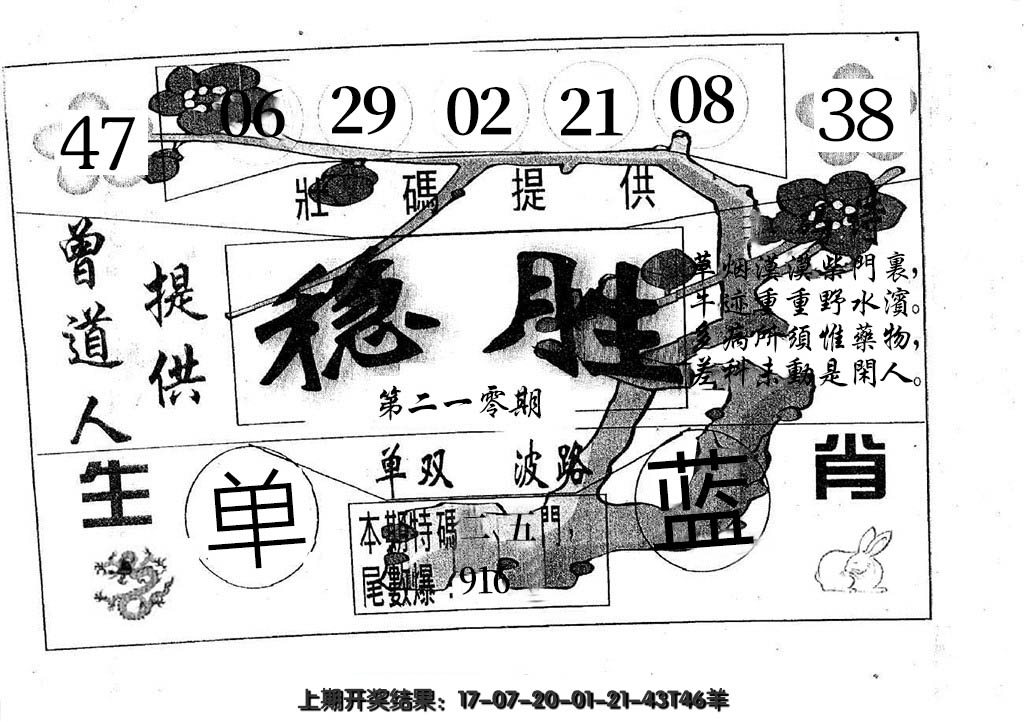 47 06 29 02 21 08 38
壯碼提供
曾道人
提供
稳胜
第二一零期
草烟漠漠柴門裏，
牛迹重重野水濱。
多病所須惟藥物，
差科未動是閑人。
生肖
单双 波路
单 蓝
本期特碼二、五門，
尾數爆：916
上期开奖结果：17-07-20-01-21-43T46羊